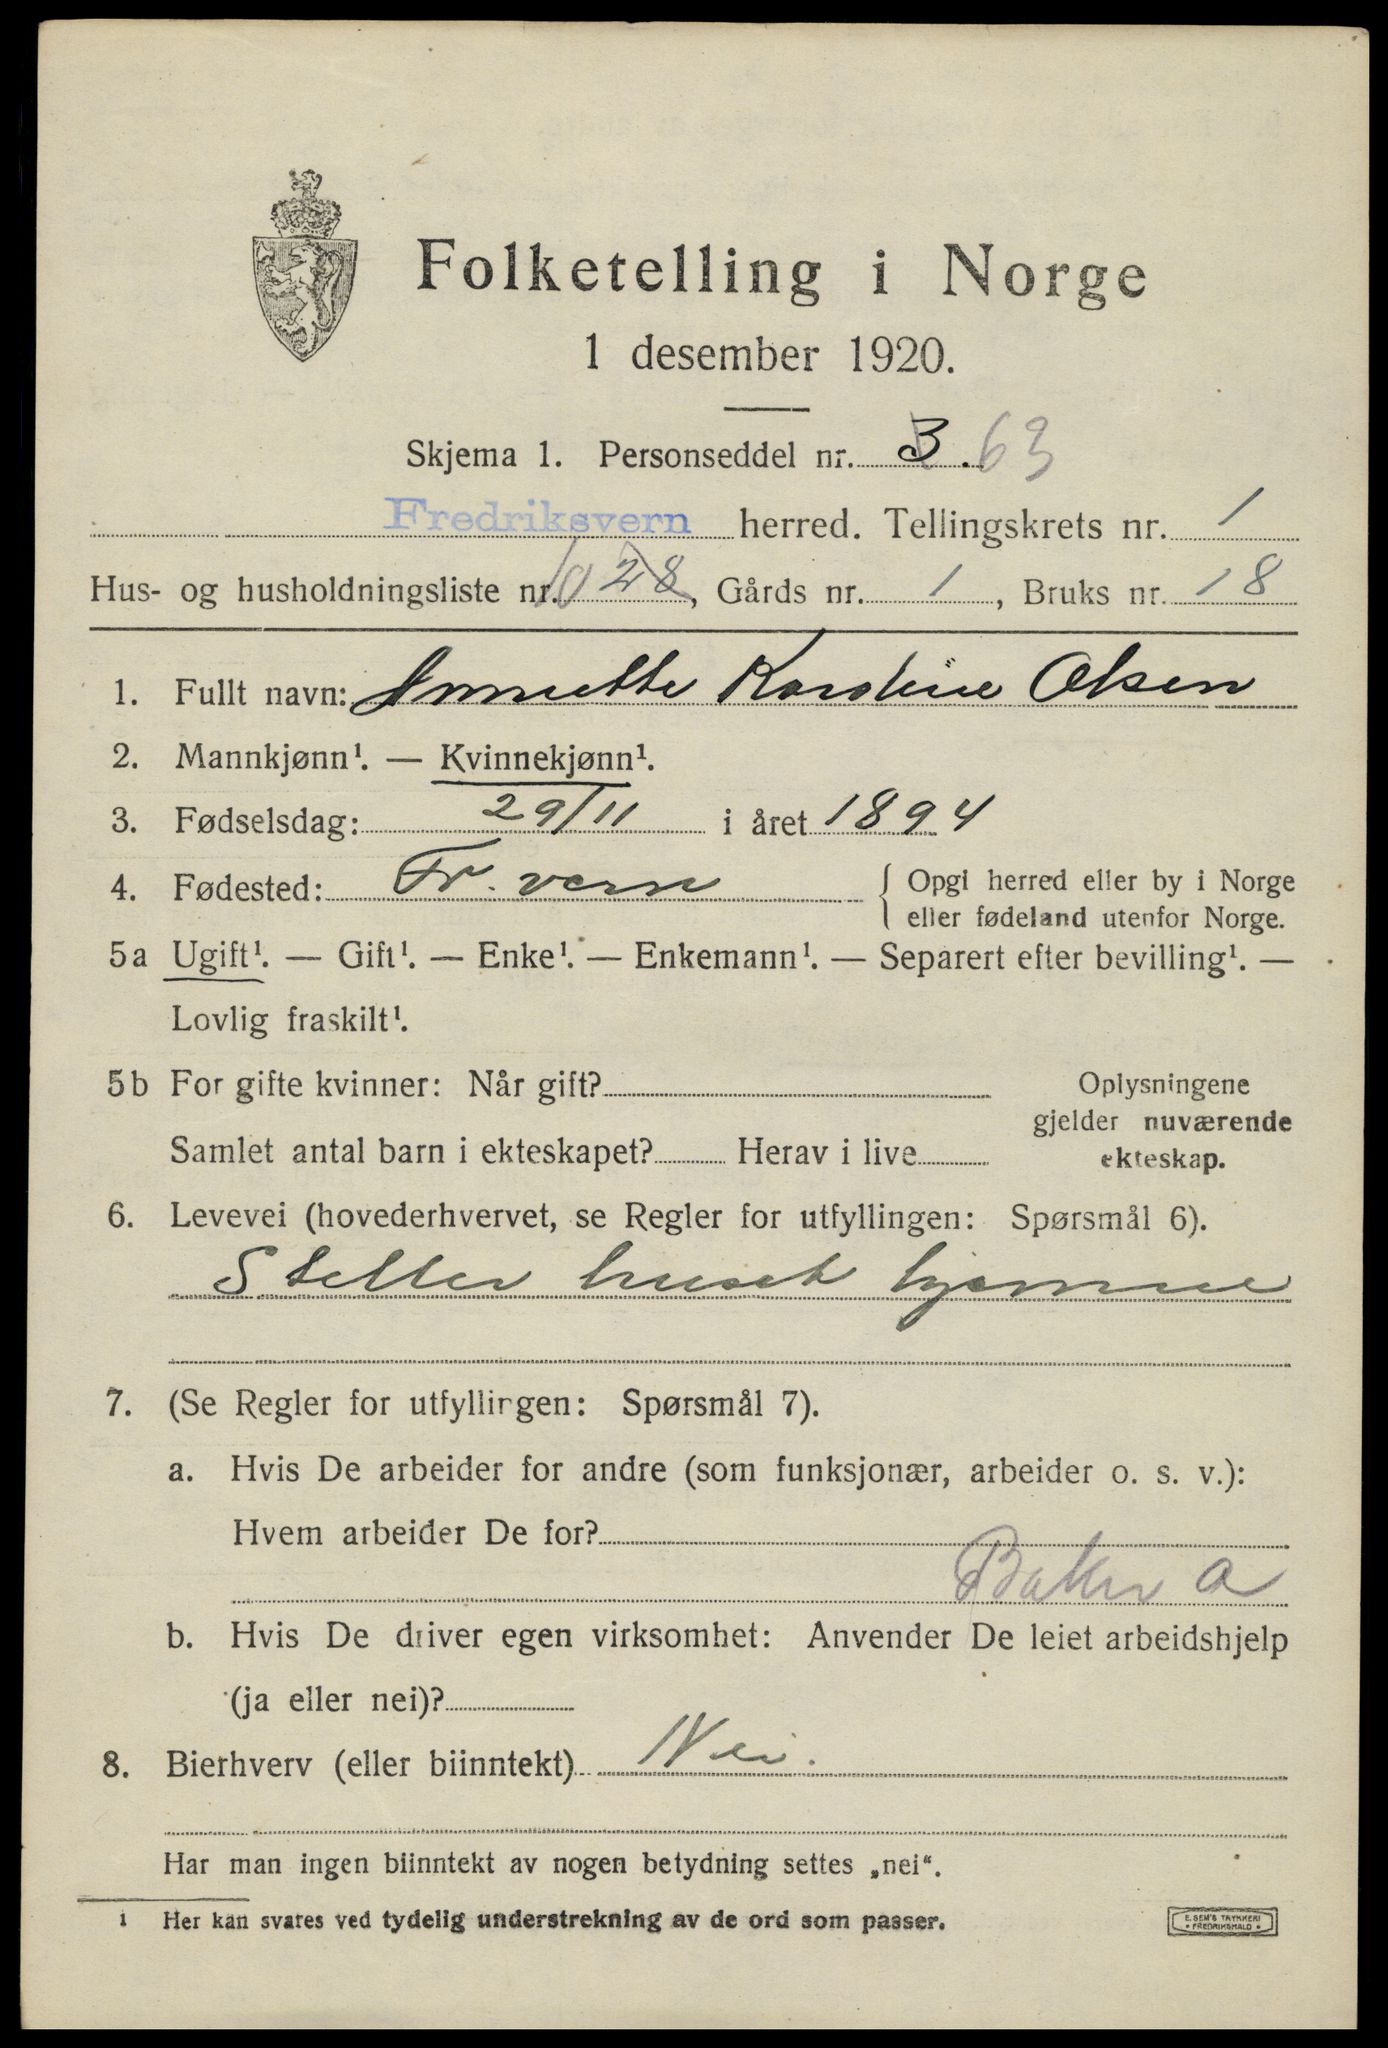 Folketelling i Norge
1 desember 1920.
Skjema 1. Personseddel nr. 3. 63
Fredriksvern herred. Tellingskrets nr. 1
Hus- og husholdningsliste nr. 10 28, Gårds nr. 1, Bruks nr. 18
1. Fullt navn: Annette Karoline Olsen
2. Mannkjønn¹. — Kvinnekjønn¹.
3. Fødselsdag: 29/11 i året 1894
4. Fødested: Fr. vern { Opgi herred eller by i Norge
eller fødeland utenfor Norge.
5a Ugift¹. — Gift¹. — Enke¹. — Enkemann¹. — Separert efter bevilling¹. —
Lovlig fraskilt¹.
5b For gifte kvinner: Når gift? Oplysningene
gjelder nuværende
Samlet antal barn i ekteskapet? Herav i live ekteskap.
6. Levevei (hovederhvervet, se Regler for utfyllingen: Spørsmål 6).
Steller huset hjemme
7. (Se Regler for utfyllingen: Spørsmål 7).
a. Hvis De arbeider for andre (som funksjonær, arbeider o. s. v.):
Hvem arbeider De for?
Baker a
b. Hvis De driver egen virksomhet: Anvender De leiet arbeidshjelp
(ja eller nei)?
8. Bierhverv (eller biinntekt) Nei.
Har man ingen biinntekt av nogen betydning settes „nei“.
1 Her kan svares ved tydelig understrekning av de ord som passer.
E. SEM'S TRYKKERI
FREDRIKSHALD